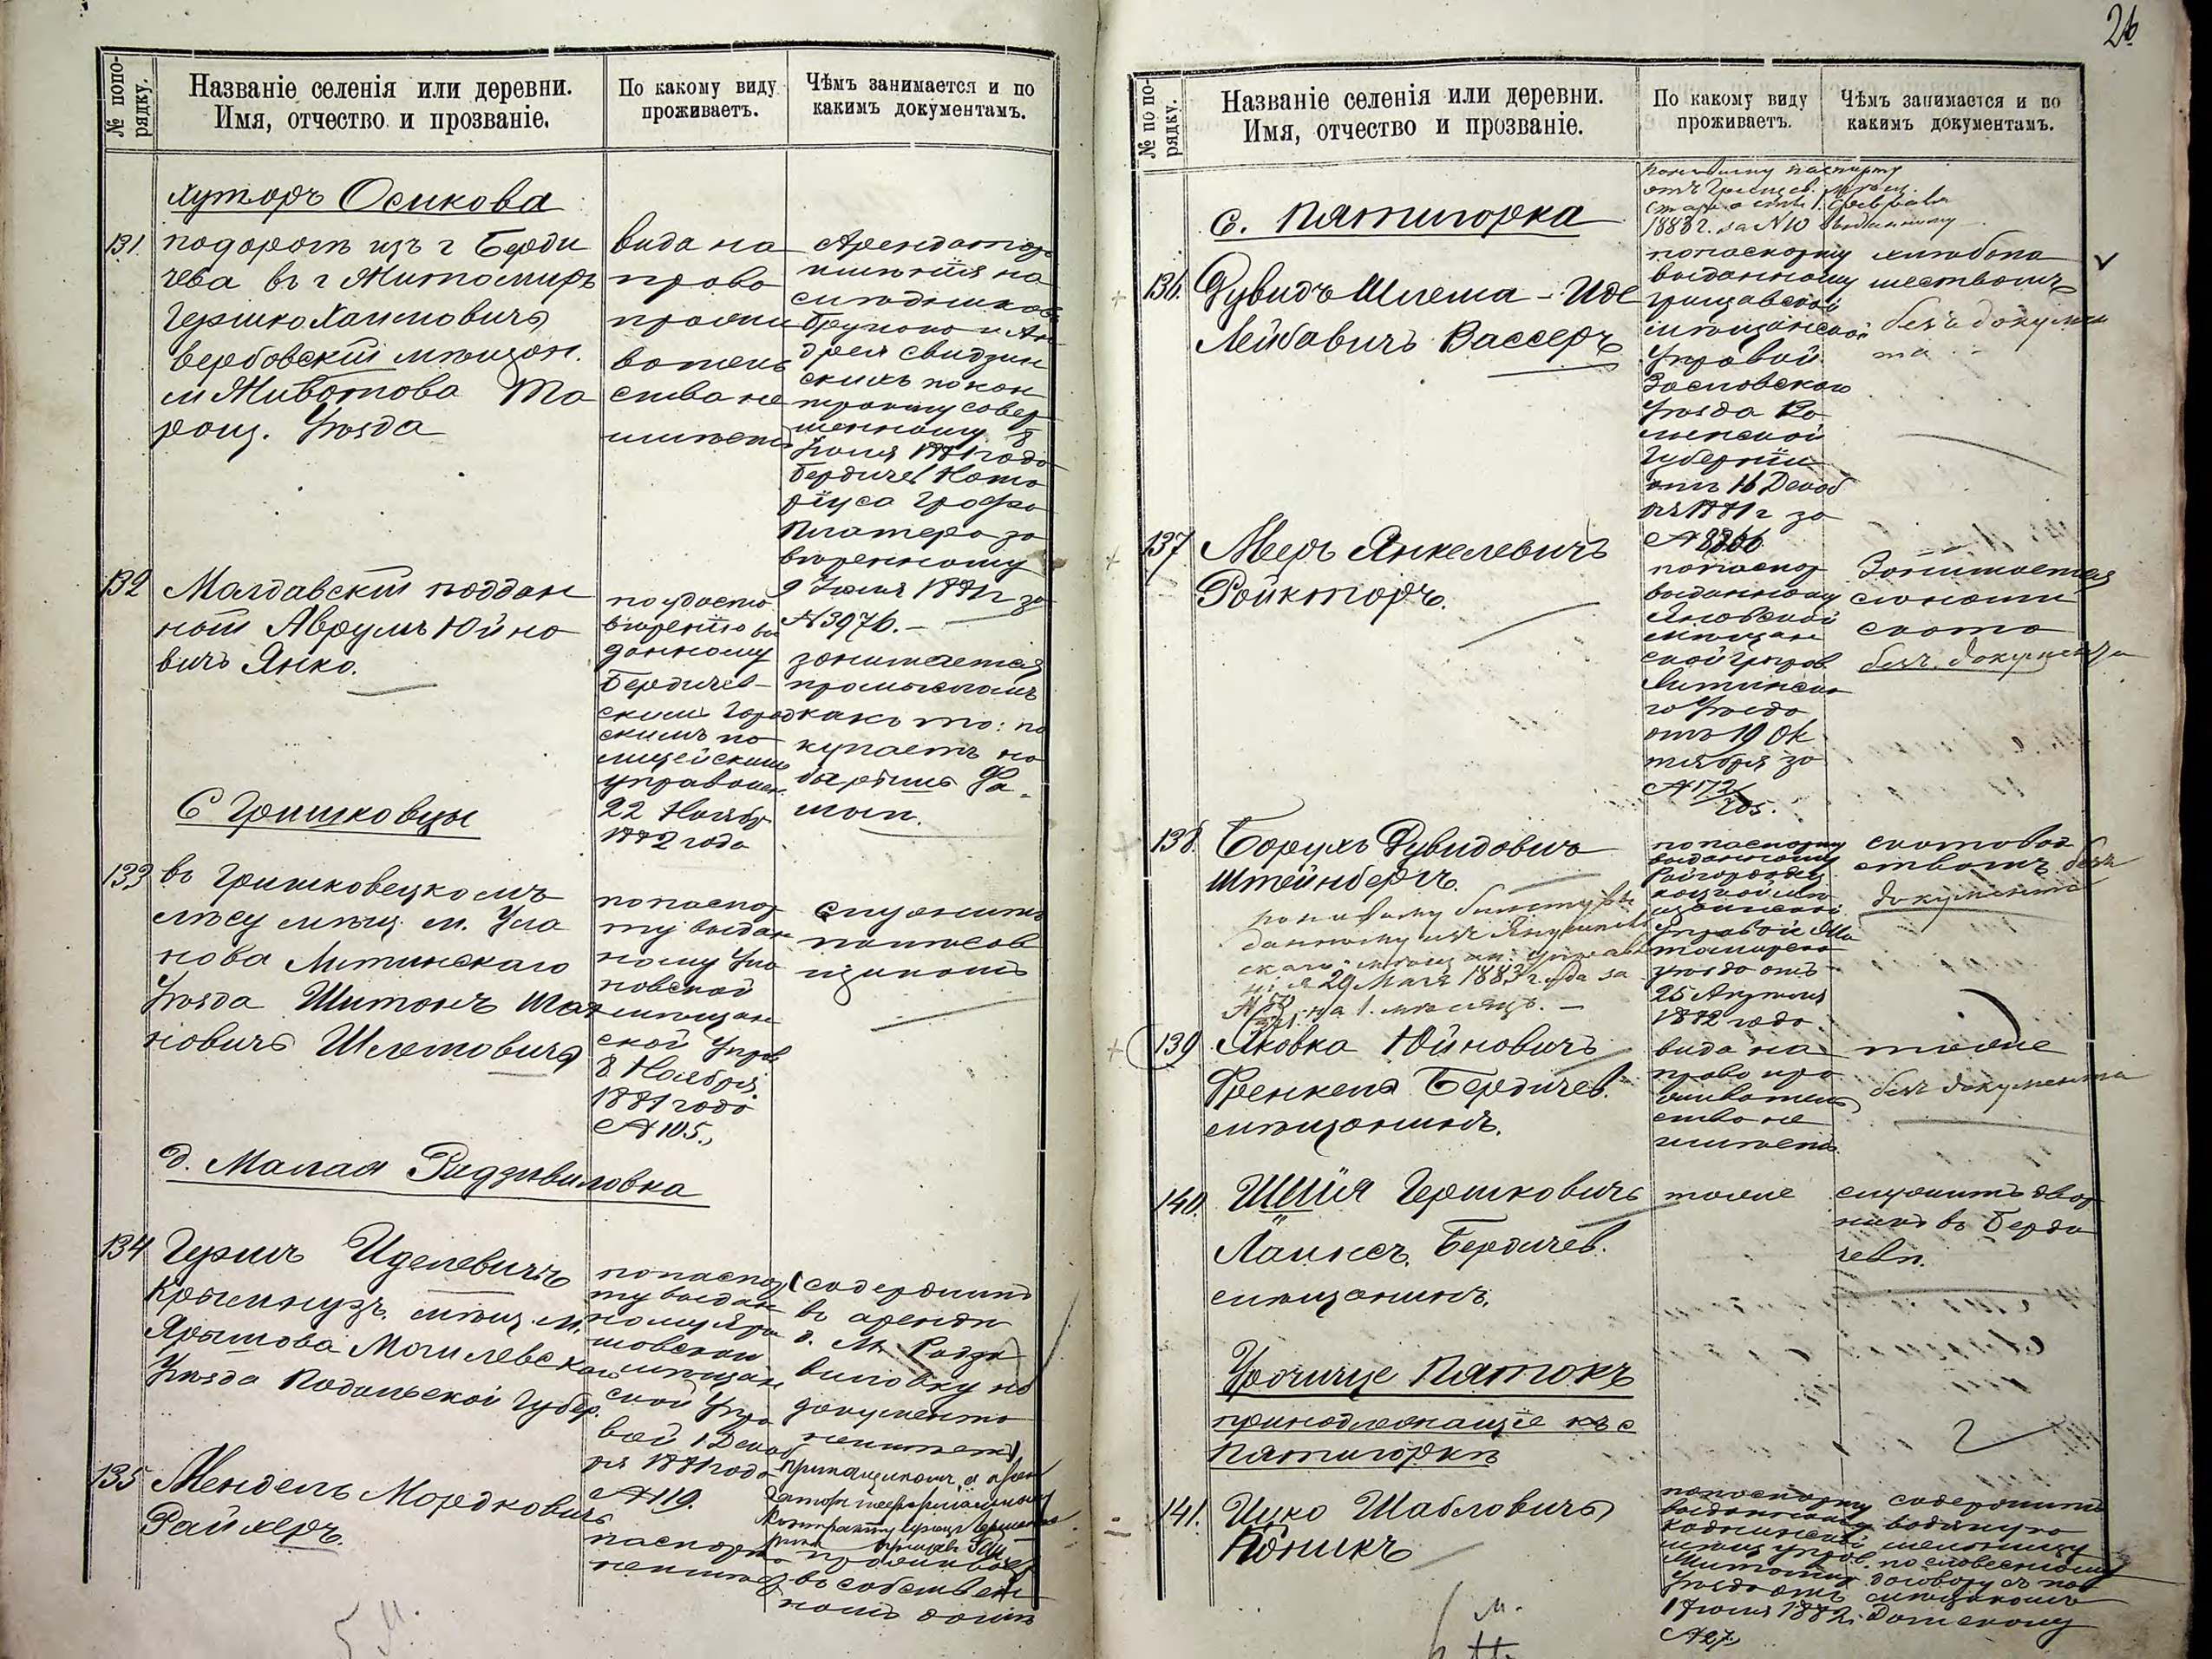 № попо-
рядку.
Названіе селенія или деревни.
Имя, отчество и прозваніе.
По какому виду
проживаетъ.
Чѣмъ занимается и по
какимъ документамъ.
хуторъ Осикова
131.
подорогѣ изъ г Берди
чева въ г Житомиръ
Гершко Хаимовичъ
Вербовскій мѣщан.
м Животова Та
ращ. Уѣзда
вида на
право
прожи
вотель
ство не
имѣетъ
Арендаторъ
имѣнія на
слѣдников
Бруноно и Ан
дрея Свидзин
скихъ по кон
тракту совер
шенному 8
Іюля 1881 года
Бердичев Нота
ріуса Графа
Платера за
вѣренному
9 Іюля 1881 г за
№ 3976.
132
Малдавскій поддан
ной Аврумъ Юйно
вичъ Янко.
по удосто
вѣренію вы
данному
Бердичев
скимъ Город
скимъ по
лицейскимъ
управлен.
22 Ноябр
1882 года
занимается
промысломъ
како то: по
купаетъ на
С Гришковцы
133
въ Гришковецкомъ
лѣсу мѣщ. м. Ула
нова Литинскаго
Уѣзда Шитонъ
новичъ Шлемовичъ
по паспор
ту выдан
ному Ула
новской
мѣщан
ской Управ
8 Ноября
1881 года
№ 105.
служитъ
полѣсов
щикомъ
д. Малая Радзивиловка
134
Гершъ Иделевичъ
мѣщ м.
Ярышова Могилевскаго
Уѣзда Подольской Губер.
по паспор
ту выдан
ному Яры
шовской
мѣщан
ской Упра
вой 1 Декаб
ря 1881 года
№ 119.
содержитъ
въ аренди
д. М. Радзи
виловку но
документа
неимѣетъ
135
Мендель Мордковичъ
Райхеръ.
паспорта
неимѣетъ
проживаетъ
въ собствен
номъ домѣ
5 м.
26
№ по по-
рядку.
Названіе селенія или деревни.
Имя, отчество и прозваніе.
По какому виду
проживаетъ.
Чѣмъ занимается и по
какимъ документамъ.
с. Пятигорка
1883 г. за № 10
136.
Дувидъ Шлема-Иде
Лейбавичъ Вассеръ
по паспорту
выданному
мѣщанской
Управой
Заславскаго
Уѣзда Во
лынской
Губерніи
отъ 16 Декаб
ря 1881 г за
№ 8866
хлѣбопа
шествомъ
безъ докумен
та
137
Меръ Янкелевичъ
Ройкторъ.
по паспор
выданному
Яновской
мѣщан
ской Управ.
Литинска
го Уѣзда
отъ 19 Ок
тября за
№ 172/205.
Занимается
скота
безъ документа
138.
Борухъ Дувидовичъ
Штейнбергъ.
29 Мая 1883 года за
на 1. мѣсяцъ.
по паспорту
выданному
Управой
уѣзда отъ
25 Апрѣля
1882 года
скотовод
ствомъ безъ
документа
139
Яковка Юйновичъ
Френкель Бердичев.
мѣщанинъ.
вида на
право про
живатель
ство не
имѣетъ
тоже
безъ документа
140.
Шейя Гершковичъ
Лаинсъ. Бердичев.
мѣщанинъ.
тоже
служитъ двор
никъ въ Берди
чевѣ.
Урочище Пятокъ
принадлежащіе къ с
Пятигоркѣ
141.
Ицко Шабловичъ
Коникъ
по паспорту
выданному
Коднинской
мѣщ управ.
Житомир
Уѣзда отъ
1 Іюля 1882.
№ 27.
содержитъ
водяную
мельницу
по словесному
договору съ по
мѣщикомъ
6 м.